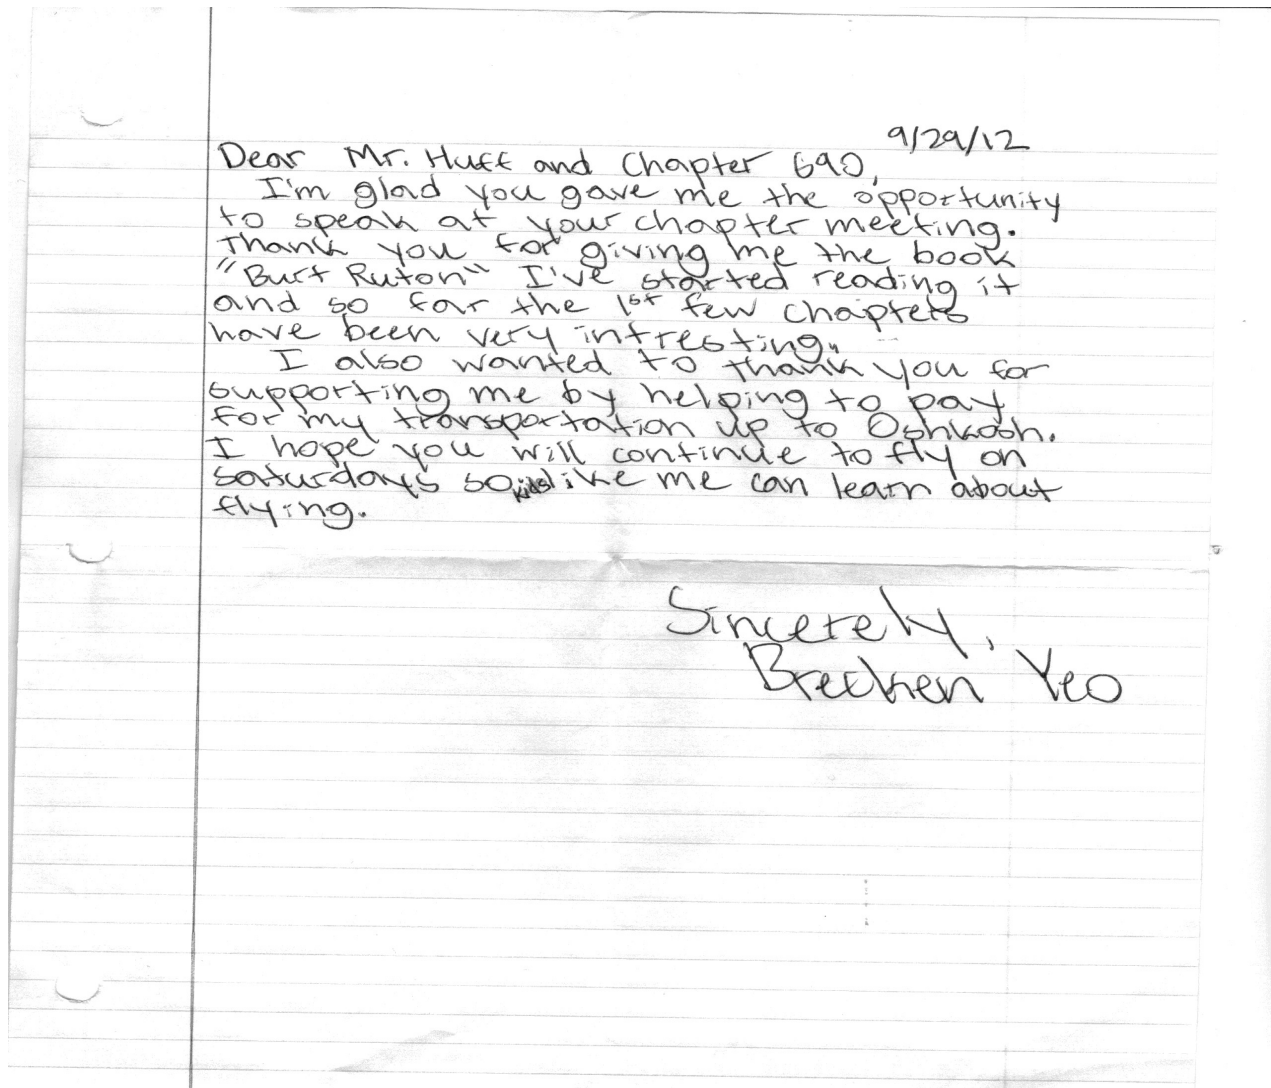 9/29/12
Dear Mr. Huff and Chapter 690,
I'm glad you gave me the opportunity
to speak at your chapter meeting.
Thank you for giving me the book
"Burt Ruton" I've started reading it
and so far the 1st few chapters
have been very intresting.
I also wanted to thank you for
supporting me by helping to pay
for my transportation up to Oshkosh.
I hope you will continue to fly on
saturdays so kids like me can learn about
flying.
Sincerely,
Brecken Yeo